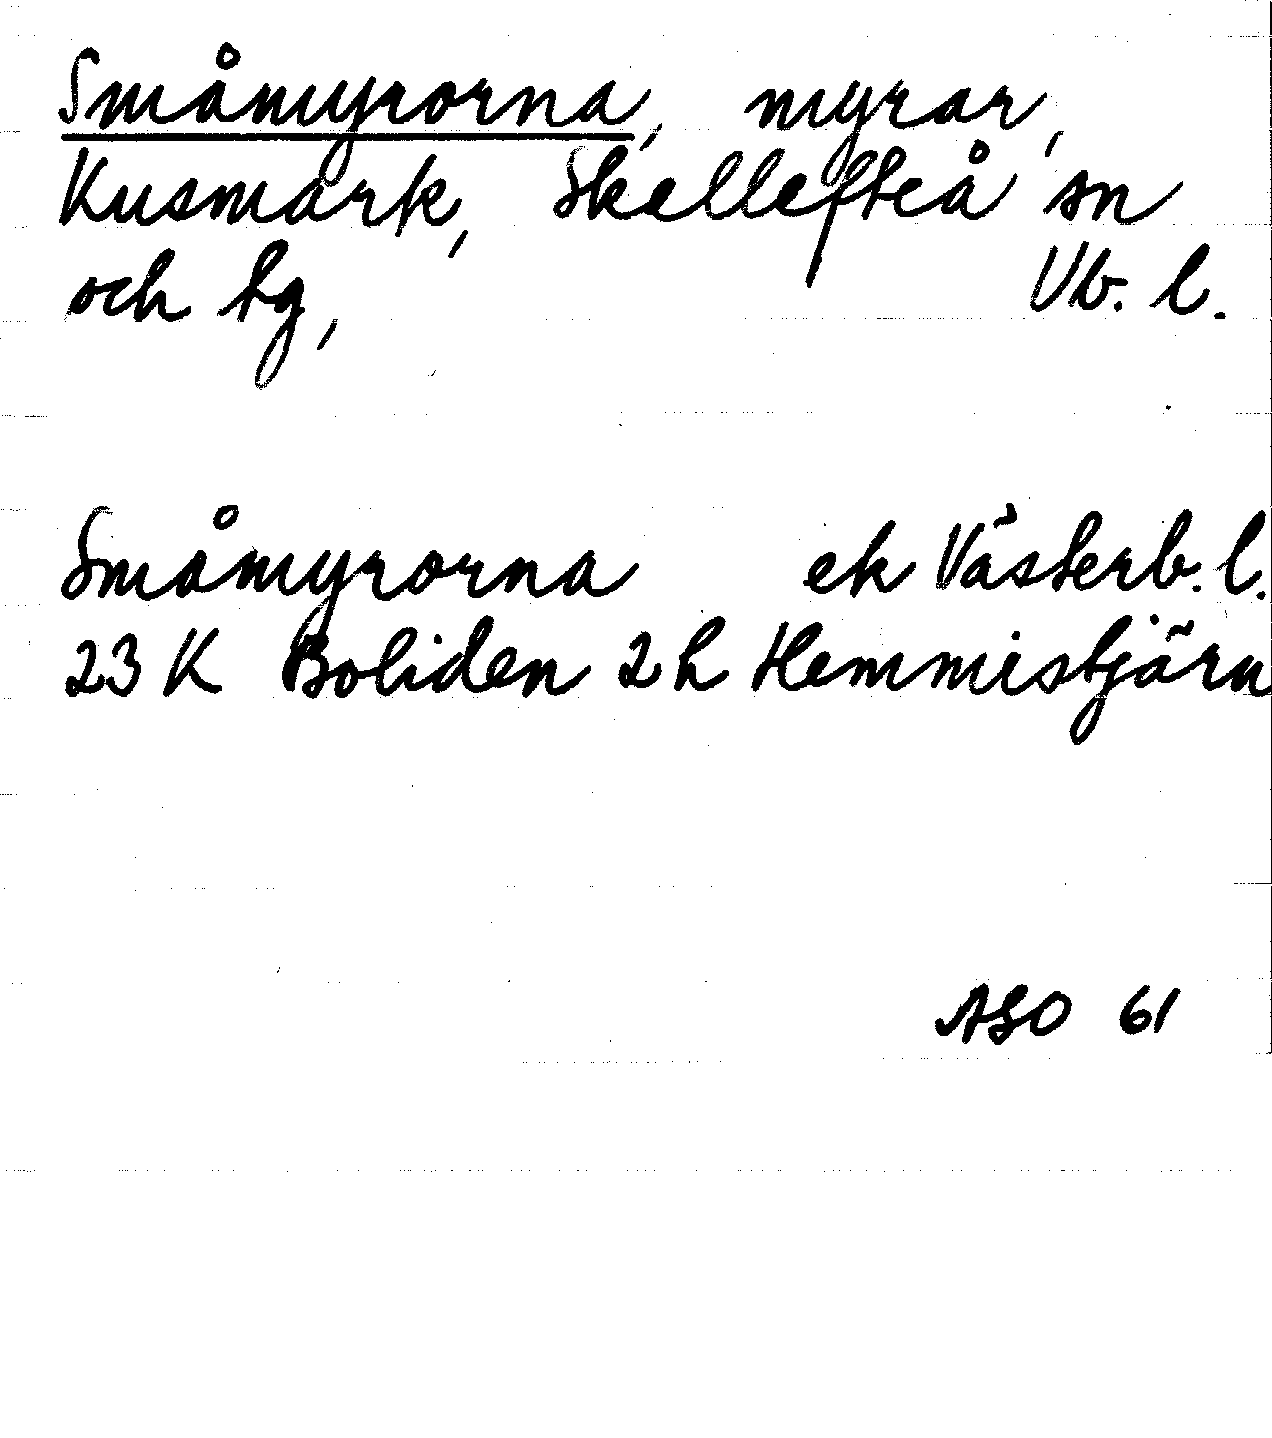 Småmyrorna, myrar,
Kusmark, Skellefteå sn
och tg, Vb. l.
Småmyrorna ek Västerb. l.
23 K Boliden 2 h Hemmistjärn
ASO 61